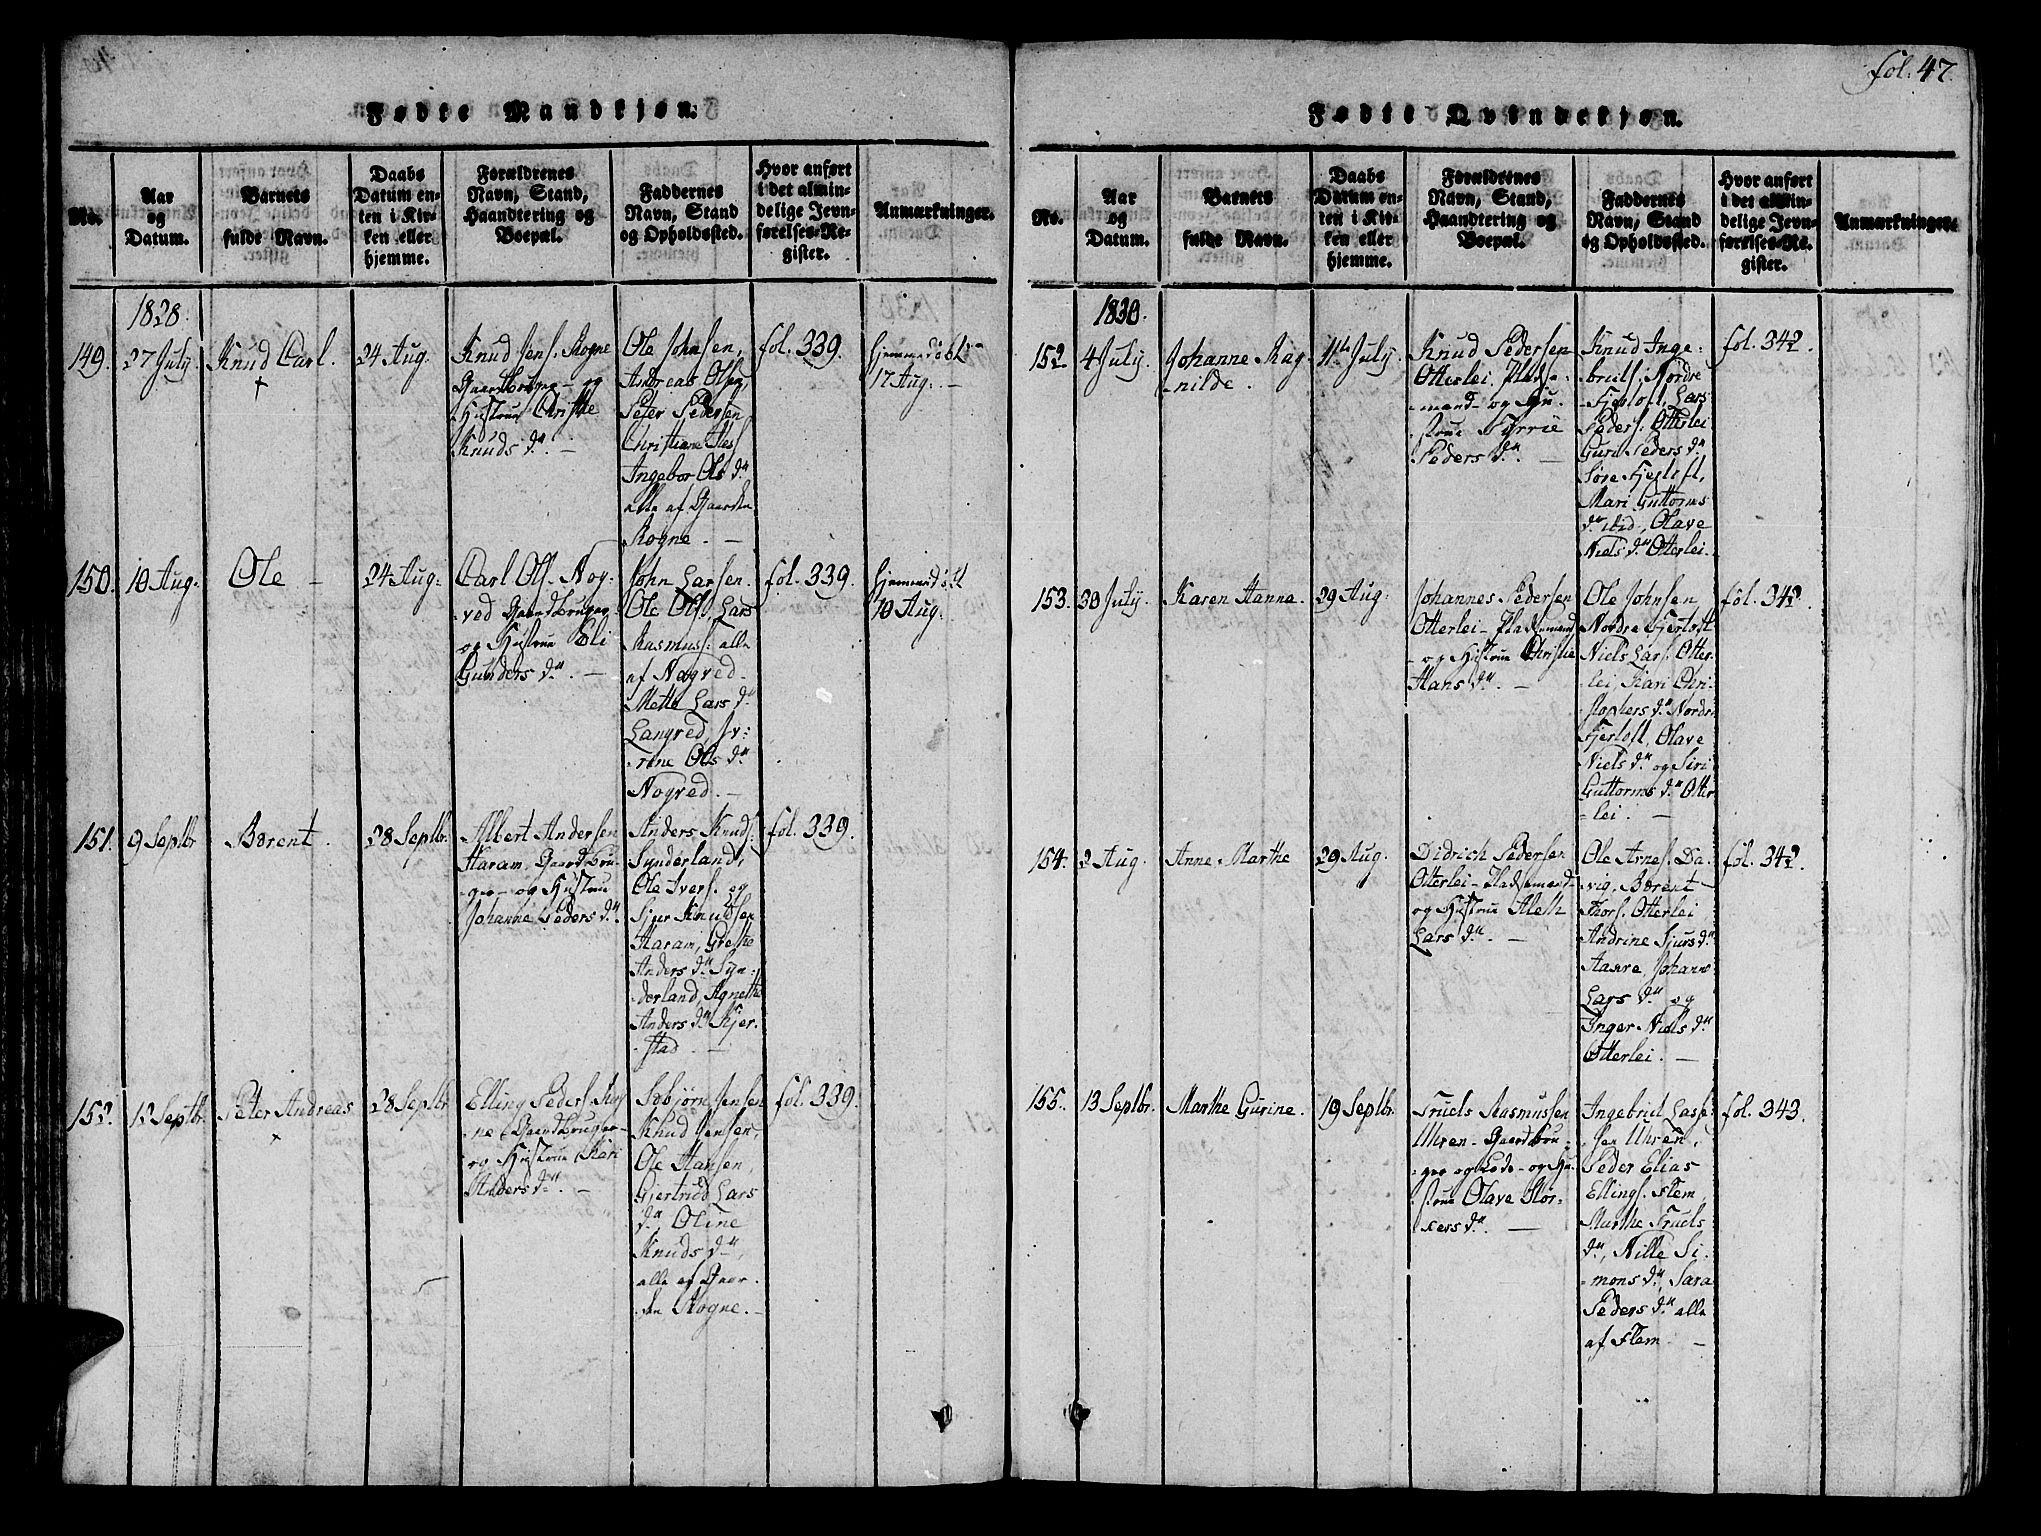 fol. 47.
Fødte Mandkjøn.
No.
Aar
og
Datum.
Barnets
fulde Navn.
Daabs
Datum en-
ten i Kir-
ken eller
hjemme.
Forældrenes
Navn, Stand,
Haandtering og
Boepæl.
Faddernes
Navn, Stand
og Opholdssted.
Hvor anført
i det almin-
delige Jevn-
førelses-Re-
gister.
Anmærkninger.
1828.
149.
27 July
Knud Carl.
24 Aug.
Knud Jens. Rogne
Gaardbruger - og
Hustrue Christie
Knuds dr. -
Ole Johnsen,
Andreas Olsen,
Peter Pedersen
Christiane
Ingebor Ols dr
alle af Gaarden
Rogne. -
fol. 339.
hjemmedøbt
17 Aug. -
150.
10 Aug.
Ole -
24 Aug:
Carl Ols. Nog-
-ved Gaardbruger
og Hustrue Eli
Gunders dr. -
John Larsen.
Ole Ols, Lars
Rasmuss: alle
af Nogved-
Mette Lars dr
Langved,
Ols dr
Nogved. -
fol. 339.
hjemmedøbt
10 Aug:
151.
9 Septbr
Bærent.
28 Septbr.
Albert Andersen
Haram, Gaardbru-
-ger - og Hustrue
Johanne Peders dr.
Anders Knuds.
Synderland,
Ole Ivers. og
Sjur Knudsen
Haram, Grethe
Anders dr Syn-
derland, Agnethe
Anders dr Kjer-
stad. -
fol. 339.
152.
12 Septbr.
Peter Andreas
28 Septbr
Elling Peders. Rog
ne Gaardbruger -
og Hustrue Kari
Anders dr. -
Sebjørn Jensen
Knud Jensen,
Ole Hansen,
Gjertrud Lars
dr, Oline
Knuds dr,
alle af Gaar-
den Rogne. -
fol. 339.
Fødte Qvindekjøn.
No.
Aar
og
Datum.
Barnets
fulde Navn.
Daabs
Datum en-
ten i Kir-
ken eller
hjemme.
Forældrenes
Navn, Stand,
Haandtering og
Boepæl.
Faddernes
Navn, Stand
og Opholdssted.
Hvor anført
i det almin-
delige Jevn-
førelses-Re-
gister.
Anmærkninger.
1830.
152.
4 July.
Johanne Mag-
nilde.
11te July.
Knud Pedersen
Otterlei, Pladse-
-mand - og Hu-
-strue
Peders dr. -
Knud Inge-
brits. Nordre
Fjertoft, Lars
Peders. Otterlei
Guri Peders dr
Søre Fjertoft,
Mari Guttorms
dr ibid, Olave
Niels dr Otterlei.
fol. 342.
153.
30 July.
Karen Hanna.
29 Aug:
Johannes Pedersen
Otterlei - Pladsemand
- og Hustrue Christie
Hans dr. -
Ole Johnsen
Nordre Fjertoft
Niels Lars. Otter-
-lei, Kari Chri-
stophers dr Nordre
Fjertoft, Olave
Niels dr og Siri
Guttorms dr Otter
-lei. -
fol. 342.
154.
2 Aug.
Anne Marthe
29 Aug.
Didrich Pedersen
Otterlei - Pladsemand -
og Hustrue Aleth
Lars dr. -
Ole Arnes. Da-
vig, Bærent -
Thors. Otterlei
Andrine Sjurs dr
Aakre, Johanne
Lars dr og
Inger Niels dr
Otterlei. -
fol. 342.
155.
13 Septbr.
Marthe Gurine.
19 Septbr.
Truels Rasmussen
Uhren - Gaardbru-
-ger og Lods - og Hu-
strue Olave
dr. -
Ingebrict Lasse-
sen Uhren,
Peder Elias
Ellings. Flem,
Marthe Truels
dr, Nille Si-
mons dr, Sara
Peders dr alle
af Flem. -
fol. 343.